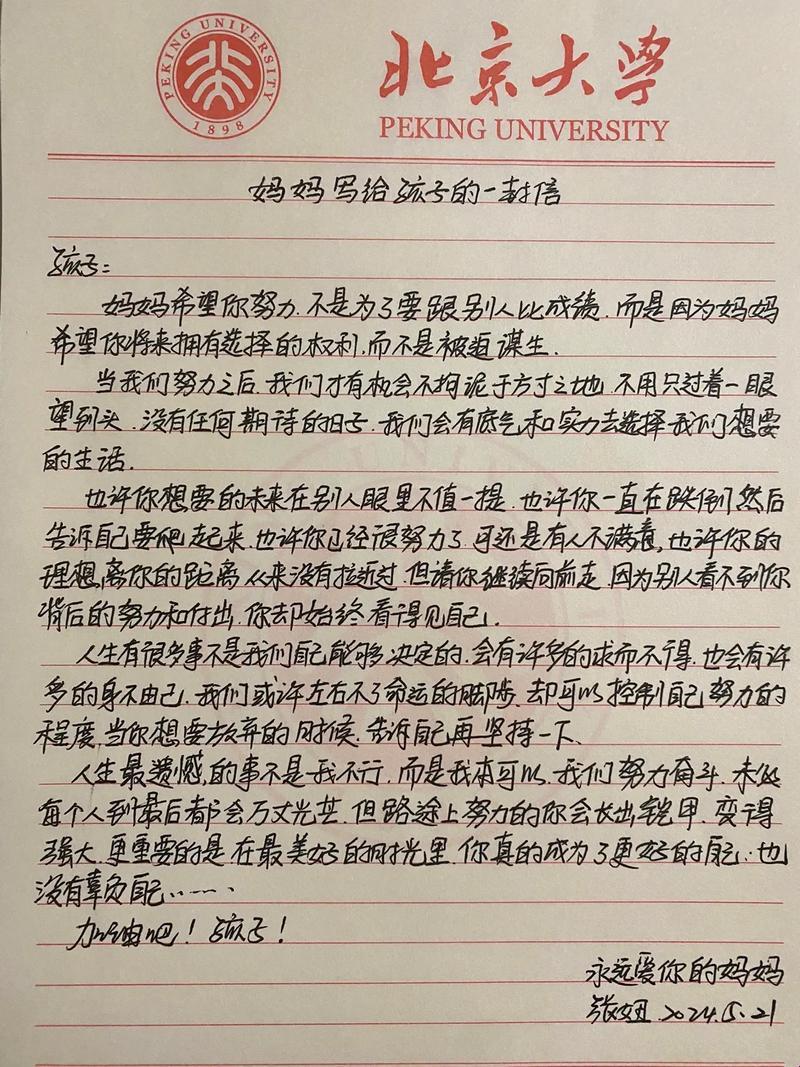 PEKING UNIVERSITY
1898
北京大学
PEKING UNIVERSITY
妈妈写给孩子的一封信
孩子:
妈妈希望你努力.不是为了要跟别人比成绩.而是因为妈妈
希望你将来拥有选择的权利,而不是被迫谋生.
当我们努力之后.我们才有机会不拘泥于方寸之地.不用只过着一眼
望到头.没有任何期待的日子.我们会有底气和实力去选择我们想要
的生活.
也许你想要的未来在别人眼里不值一提.也许你一直在跌倒然后
告诉自己要爬起来.也许你已经很努力了.可还是有人不满意,也许你的
理想,离你的距离从来没有拉近过.但请你继续向前走.因为别人看不到你
背后的努力和付出.你却始终看得见自己.
人生有很多事不是我们自己能够决定的.会有许多的求而不得.也会有许
多的身不由己.我们或许左右不了命运的脚步.却可以控制自己努力的
程度,当你想要放弃的时候.告诉自己再坚持一下、
人生最遗憾,的事不是我不行,而是我本可以.我们努力奋斗.未必
每个人到最后都会万丈光芒.但路途上努力的你会长出铠甲.变得
强大.更重要的是在最美好的时光里.你真的成为了更好的自己.也
没有辜负自己……
加油吧!孩子!
永远爱你的妈妈
张妞.2024.5.21